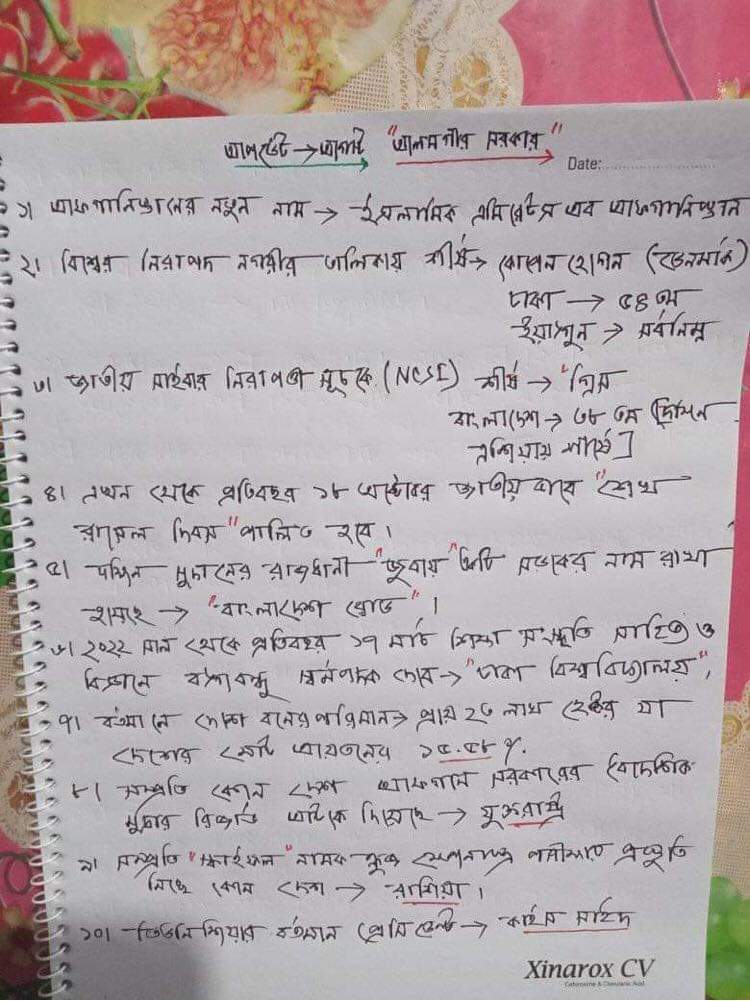 আপডেট → আগস্ট "আলমগীর সরকার"
Date:
১। আফগানিস্তানের নতুন নাম → ইসলামিক এমিরেটস অব আফগানিস্তান
২। বিশ্বের নিরাপদ নগরীর তালিকায় শীর্ষ → কোপেন হেগেন (ডেনমার্ক)
ঢাকা → ৫৪ তম
ইয়াঙ্গুন → সর্বনিম্ন
৩। জাতীয় সাইবার নিরাপত্তা সূচকে (NCSI) শীর্ষ → "গ্রিস
বাংলাদেশ → ৩৮ তম [দক্ষিণ
এশিয়ায় শীর্ষে]
৪। এখন থেকে প্রতিবছর ১৮ অক্টোবর জাতীয় ভাবে "শেখ
রাসেল দিবস" পালিত হবে।
৫। দক্ষিন সুদানের রাজধানী "জুবায়" ১টি সড়কের নাম রাখা
হয়েছে → "বাংলাদেশ রোড"।
৬। ২০২২ সাল থেকে প্রতিবছর ১৭ মার্চ শিক্ষা সংস্কৃতি সাহিত্য ও
বিজ্ঞানে বঙ্গবন্ধু স্বর্ণপদক দেবে → "ঢাকা বিশ্ববিদ্যালয়",
৭। বর্তমানে দেশে বনের পরিমান → প্রায় ২৩ লাখ হেক্টর যা
দেশের মোট আয়তনের ১৫.৫৮ %.
৮। সম্প্রতি কোন দেশ আফগান সরকারের বৈদেশিক
মুদ্রার রিজার্ভ আটকে দিয়েছে → যুক্তরাষ্ট্র
৯। সম্প্রতি "স্কাইফল" নামক ক্রুজ ক্ষেপনাস্ত্র পরীক্ষার প্রস্তুতি
নিচ্ছে কোন দেশ → রাশিয়া।
১০। তিউনিশিয়ার বর্তমান প্রেসিডেন্ট → কাইস সাইদ
Xinarox CV